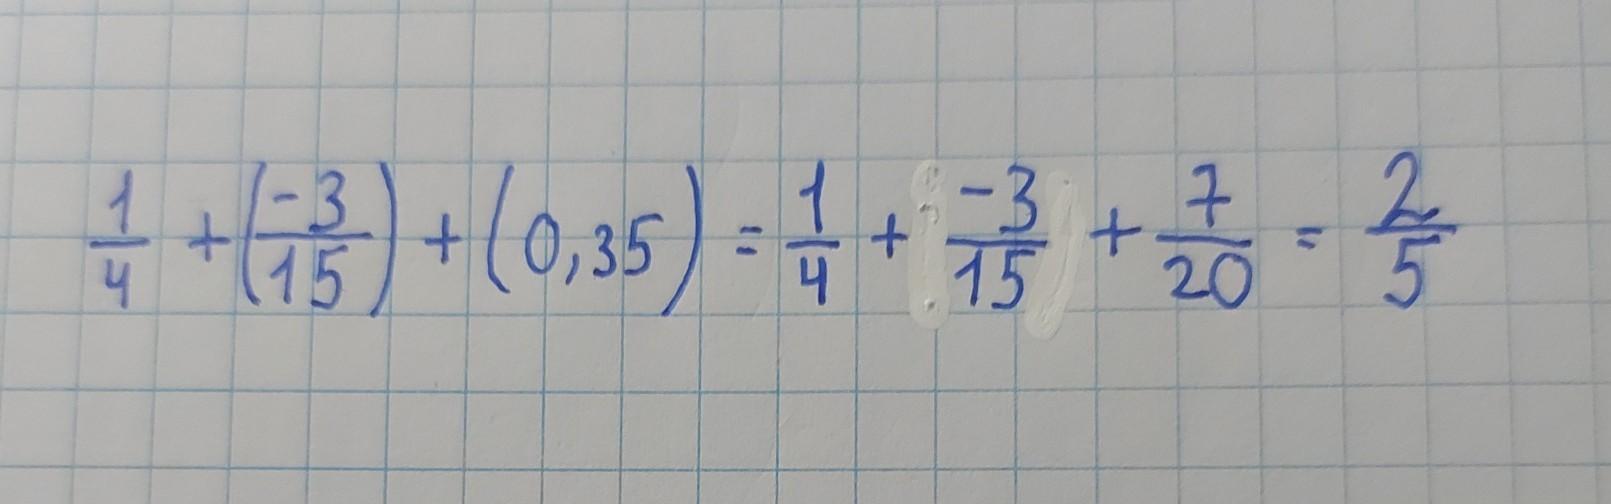 1/4 + (-3/15) + (0,35) = 1/4 + -3/15 + 7/20 = 2/5